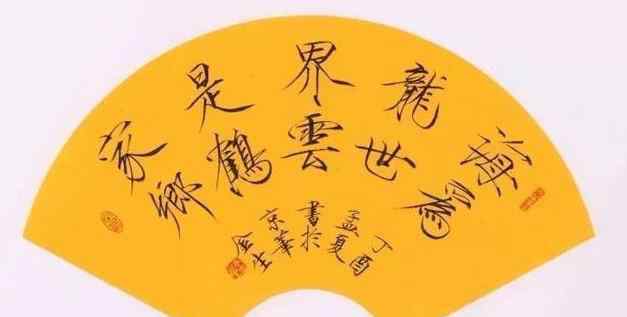 海為
龍世
界雲
是鶴
家鄉
丁酉
孟夏
書於
京華
金生